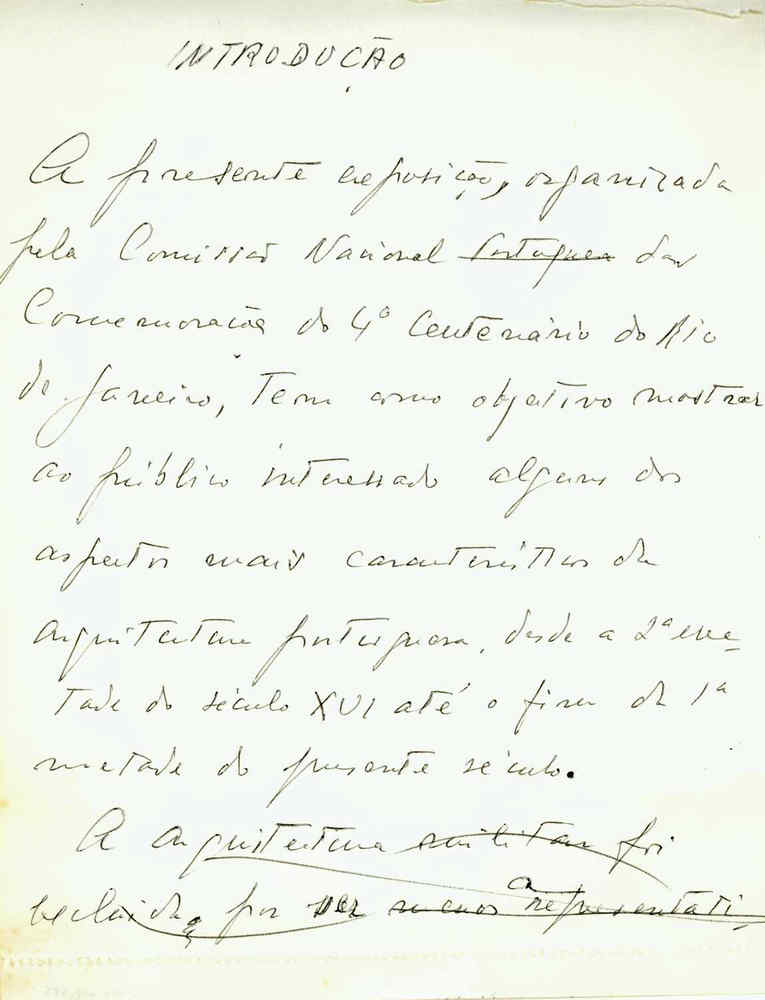 INTRODUÇÃO
A presente exposição, organizada
pela Comissão Nacional Portuguesa das
Comemorações do 4º Centenário do Rio
de Janeiro, tem como objetivo mostrar
ao público interessado alguns dos
aspectos mais característicos da
arquitectura portuguesa, desde a 2ª me-
tade do século XVI até o fim da 1ª
metade do presente século.
A arquitectura militar foi
excluida, por ser menos a representati-